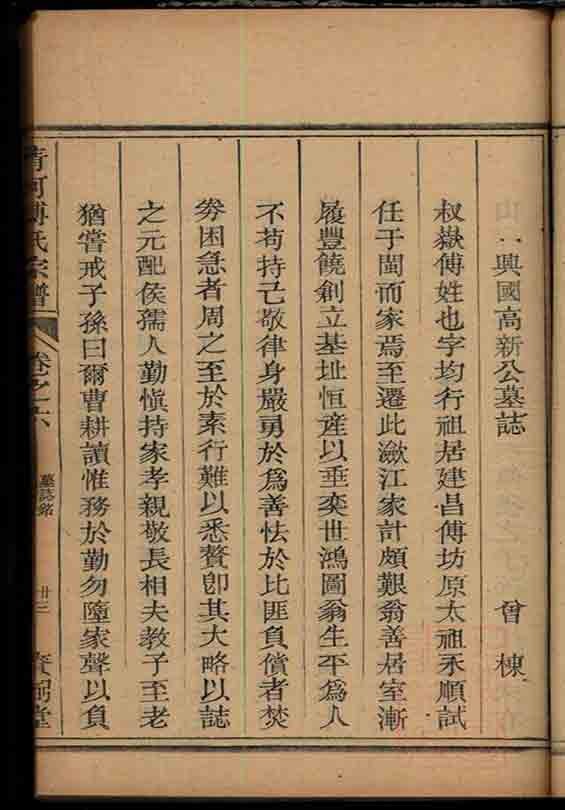 興國高新公墓誌 曾棟
叔嶽傅姓也字均行祖居建昌傅坊原太祖永順試
任于閩而家焉至遷此潋江家計頗艱翁善居室漸
履豐饒創立基址恒産以垂奕世鴻圖翁生平爲人
不苟持己敬律身嚴勇於爲善怯於比匪負償者焚
劵困急者周之至於素行難以悉贅卽其大略以誌
之元配侯孺人勤愼持家孝親敬長相夫教子至老
猶嘗戒子孫曰爾曹耕讀惟務於勤勿墮家聲以負
清河傅氏宗譜 卷之六 墓誌銘 卅三 堂